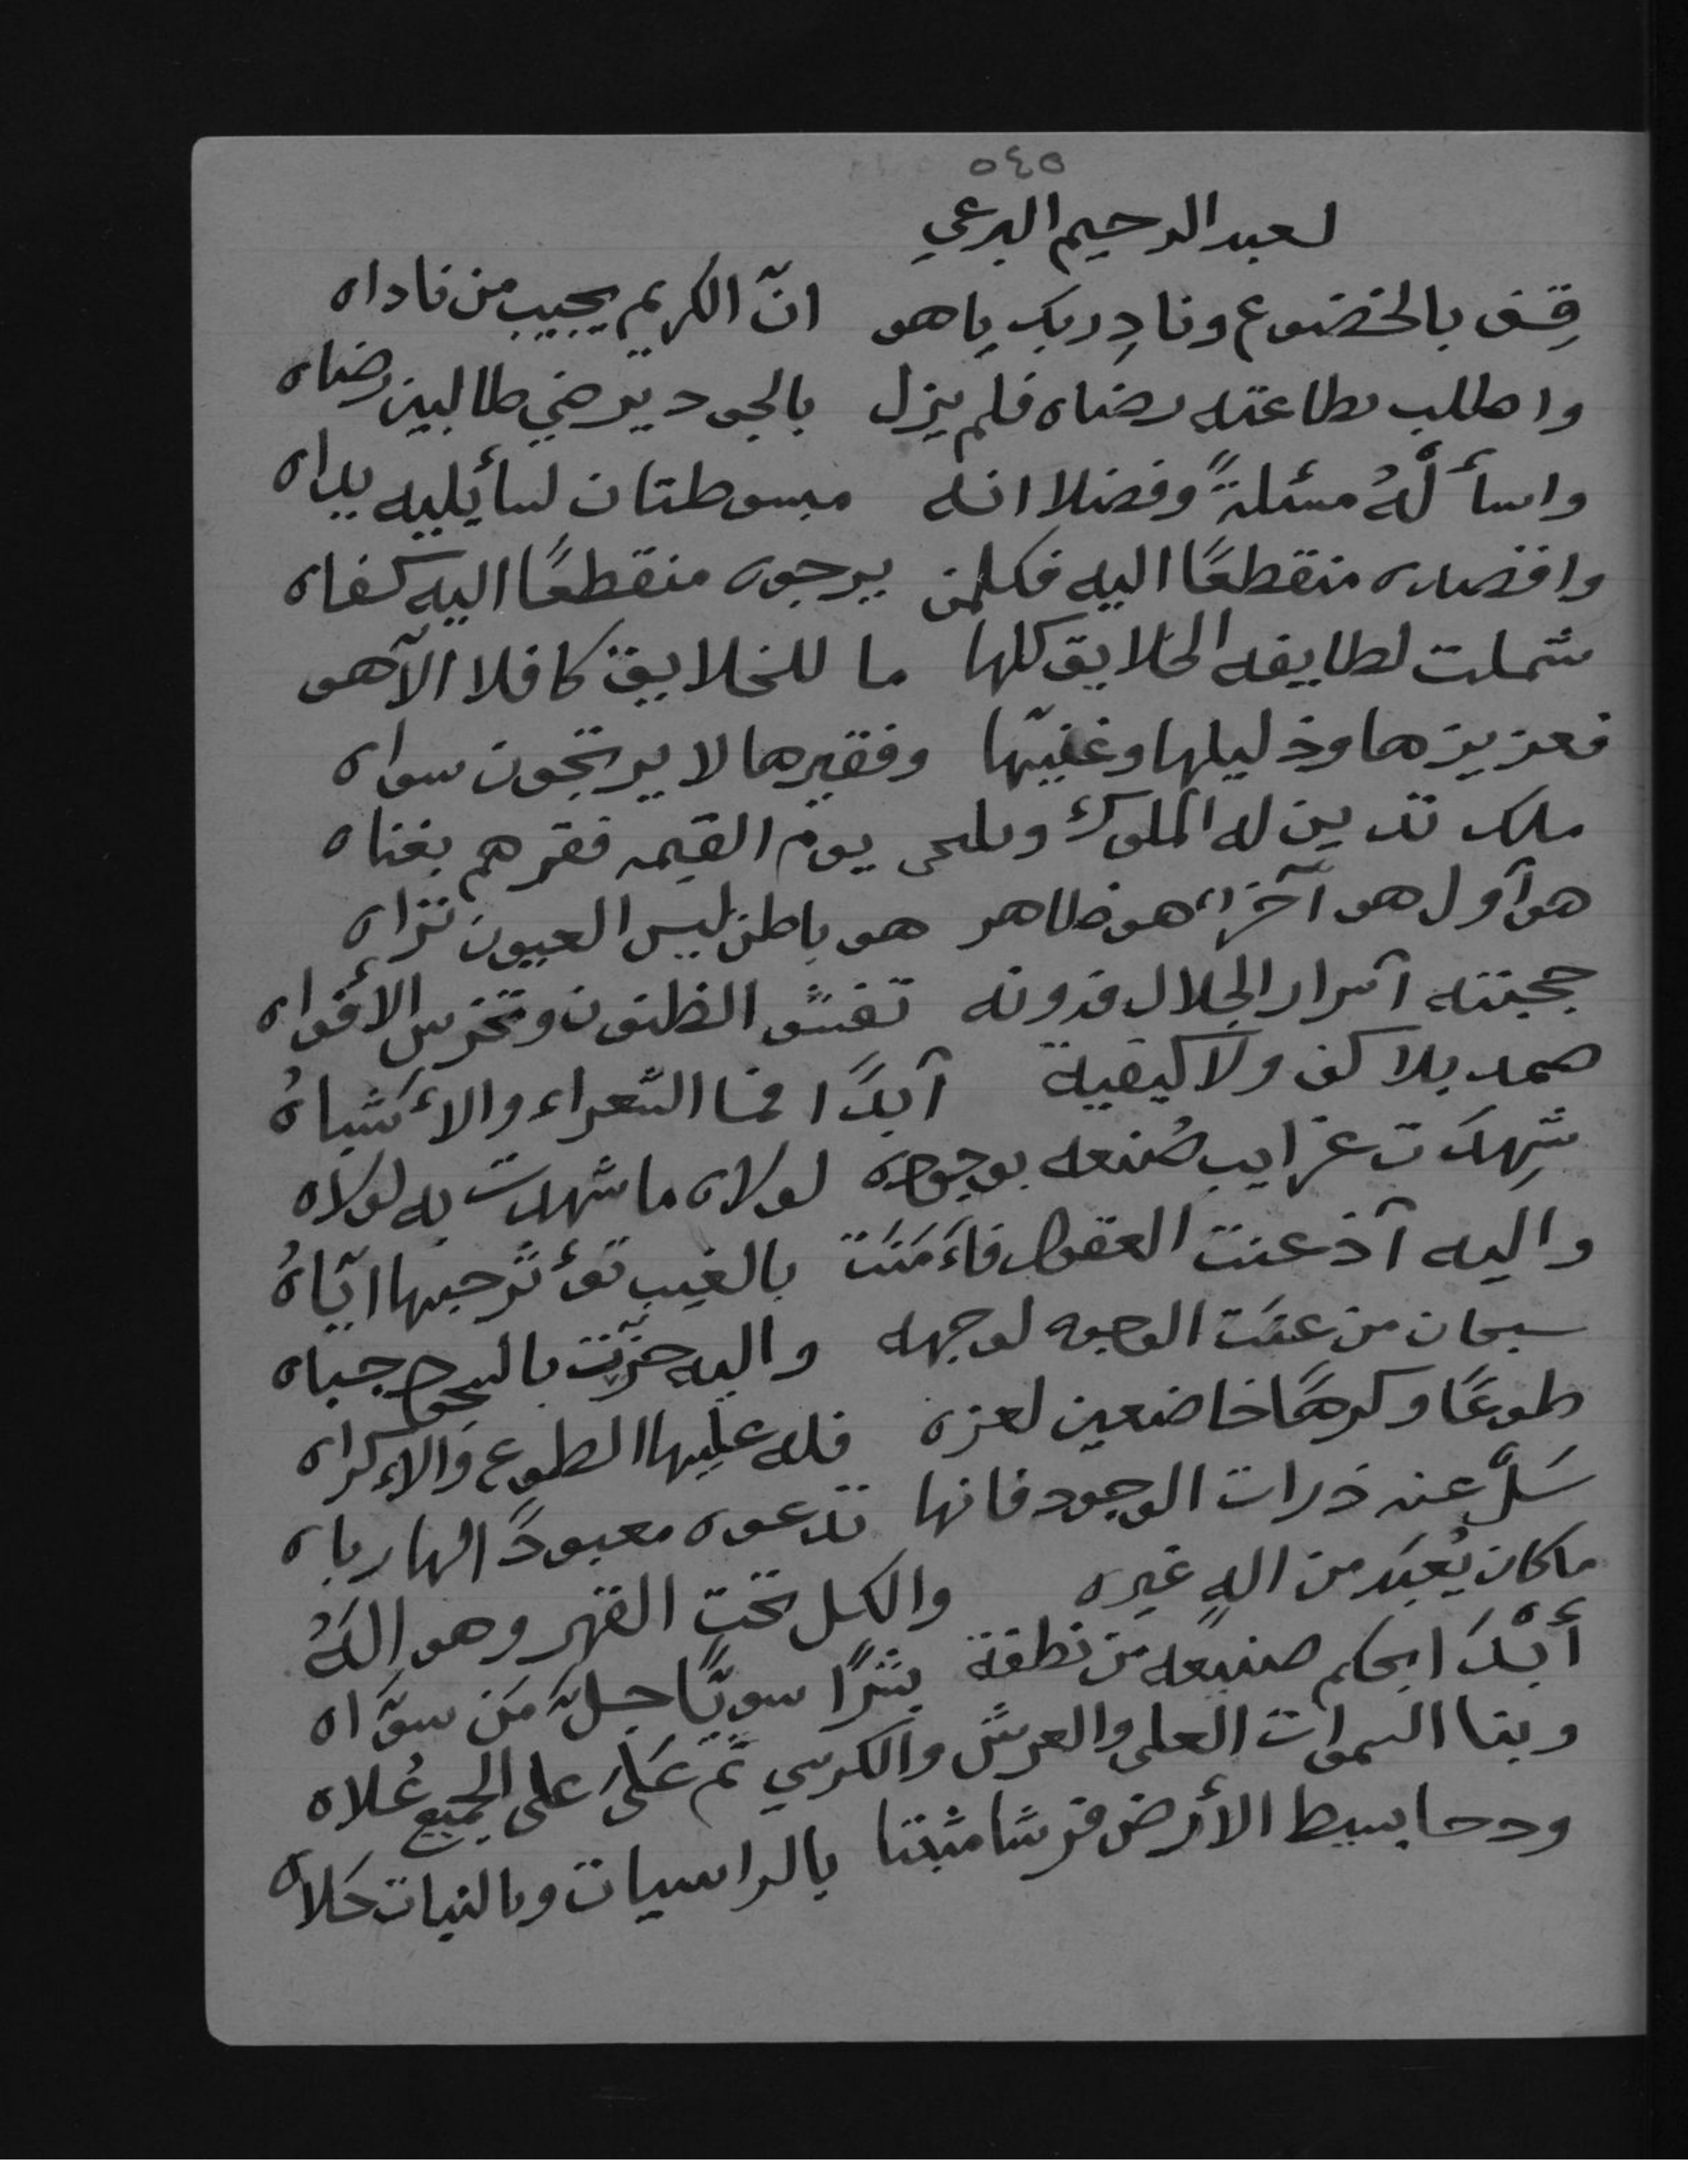 ٥٤٥
لعبد الرحيم البرعي
قِف بالخضوع ونادِ ربك ياهو انّ الكريم يجيب من ناداه
واطلب بطاعته رضاه فلم يزل بالجود يرضي طالبين رضاه
واسألهُ مسئلةً وفضلا انه مبسوطتان لسأيليه يداه
واقصده منقطعًا اليه فكلمن يرجوه منقطعًا اليه كفاه
شملت لطايفه الخلايق كلها ما للخلايق كافلا الّا هو
فعزيزها وذليلها وغنيّها وفقيرها لا يرتجون سواه
ملك تدين له الملوك ويلتجي يوم القيمه فقرهم بغناه
هو أول هو آخر هو ظاهر هو باطن ليس العيون تراه
حجبته أسرار الجلال فدونه تفشو الظنون وتخرس الأفواه
صمد بلا كف ولا كيفية أبدًا فما الشعراء والأشباهُ
شِهدَت غرايب صُنعه بوجوده لولاه ما شهدت به لولاه
واليه أذعنت العقول فاَءمَنَت بالغيب تؤثر حبها ايّاهُ
سبحان من عنَت الوجوه لوجهه واليه خرّت بالسجود جباه
طوعًا وكرهًا خاضعين لعزه فله عليها الطوع والإكراه
سَل عنه ذرات الوجود فانها تدعوه معبودً الها رباه
ماكان يُعبَد من الهٍ غيره والكل تحت القهر وهو الهُ
أبْدَا بحكم صنيعه من نطفة بشرًا سويًّا جلَّ مَن سوَّاه
وبنا السموات العلى والعرش والكرسي ثم عَلَى على الجميع عُلاه
ودحا بسيط الأرض فرشا مثبتا بالراسيات وبالنبات حَلاه